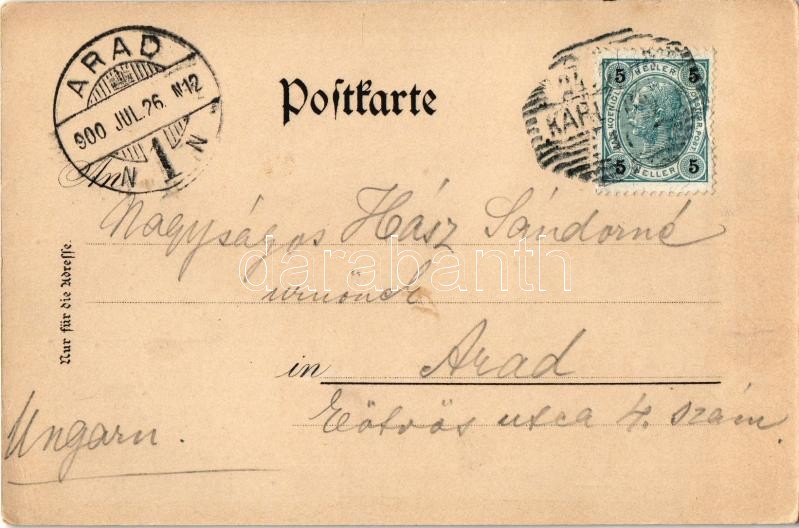 ARAD
900 JUL. 26. N12
N 1 N
Postkarte
5 HELLER 5
5 HELLER 5
24
KARL
An
Nagyságos Hász Sándorné
darabanth
urnőnek
in Arad
Eötvös utca 4. szám.
Ungarn.
Nur für die Adresse.